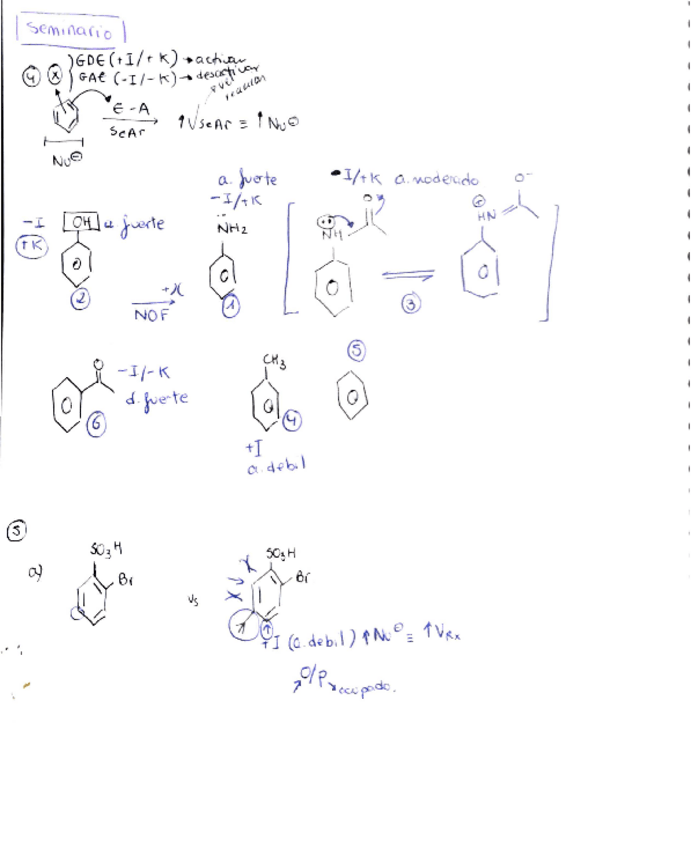 Seminario
④ X GDE (+I/+K) → activar
GAE (-I/-K) → desactivar
E-A
SEAr
↑VSEAr ≡ ↑Nu⊖
Nu⊖
a. fuerte
-I/+K a. moderado
O⁻
-I
OH a fuerte
-I/+K
+K
N̈H₂
NH
O
HN
②
NOF
①
③
⑤
O
-I/-K
d. fuerte
⑥
CH₃
④
+I
a. debil
⑤
a)
SO₃H
Br
vs
SO₃H
Br
+I (a. debil) ↑Nu⊖ ≡ ↑VRx
O/P → ocupado.